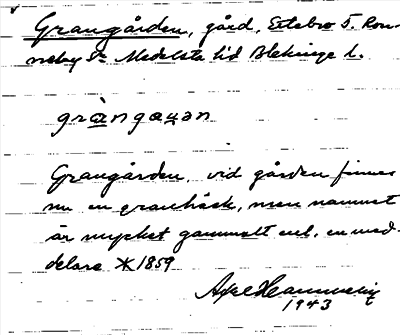 Grangården, gård, Estebro 5. Ron-
neby Sn Medelsta hd Blekinge l.
gràngaɥan
Grangården, vid gården finnes
nu en granhäck, men namnet
är mycket gammalt enl. en med-
delare ✶ 1859
Axel Hammelig
1943